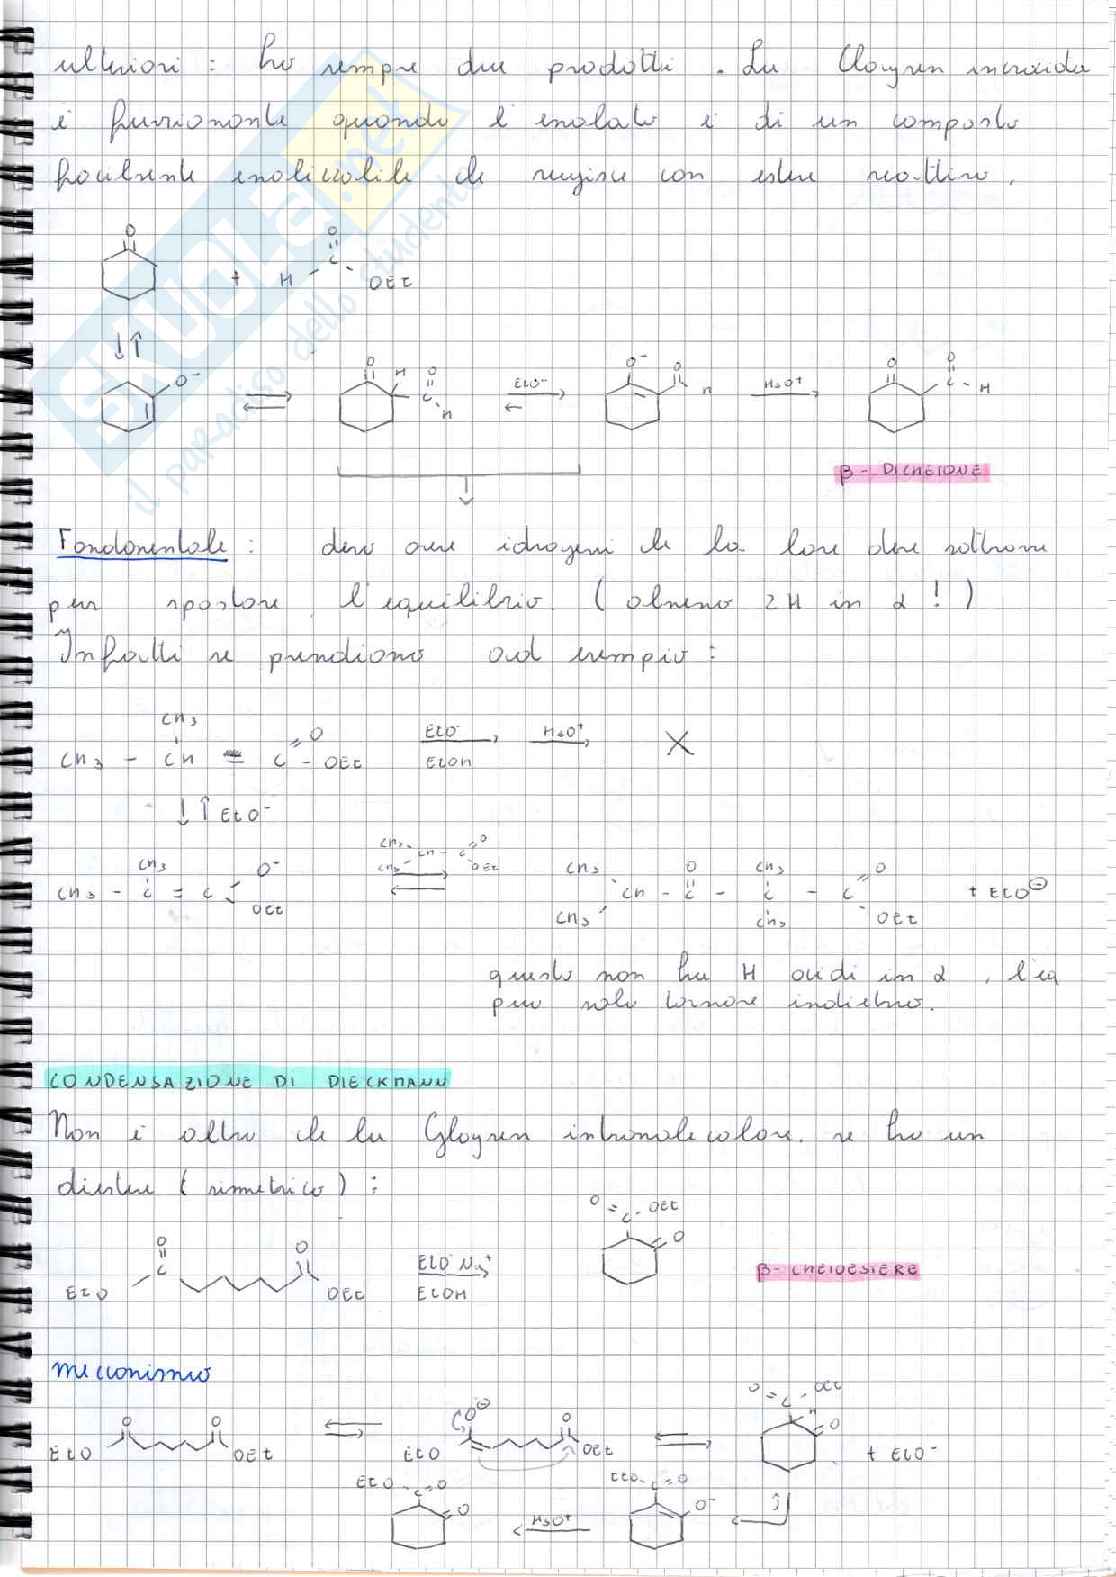 ulteriori : ho sempre due prodotti . La Claysen incrociata
è funzionante quando l'enolato è di un composto
facilmente enolizzabile che reagisce con estere reattivo.
O
O
+ H C OEt
O⁻ ⇌ O H O C H EtO⁻ O⁻ O H H₃O⁺ O O C - H
β - DICHETONE
Fondamentale : devo avere idrogeni che la base deve sottrarre
per spostare l'equilibrio. (almeno 2H in α!)
Infatti se prendiamo ad esempio :
CH₃
CH₃ - CH = C O - OEt EtO⁻ EtOH H₃O⁺ X
↓↑ EtO⁻
CH₃ CH₃ CH C O OEt
CH₃ - C = C O⁻ OEt ⇌ CH₃ CH₃ CH - C O - C CH₃ CH₃ - C O OEt + EtO⊖
questo non ha H acidi in α , l'eq
può solo tornare indietro.
CONDENSAZIONE DI DIECKMANN
Non è altro che la Claysen intramolecolare. se ho un
diestere (simmetrico) :
O = C - OEt
EtO C O O OEt EtO⁻Na⁺ EtOH O β-CHETOESTERE
meccanismo
EtO O O OEt ⇌ EtO O⊖ O OEt ⇌ O = C - OEt H O + EtO⁻
EtO - C = O O H₃O⁺ EtO - C = O O⁻
SKUOLA.net
il paradiso dello studente